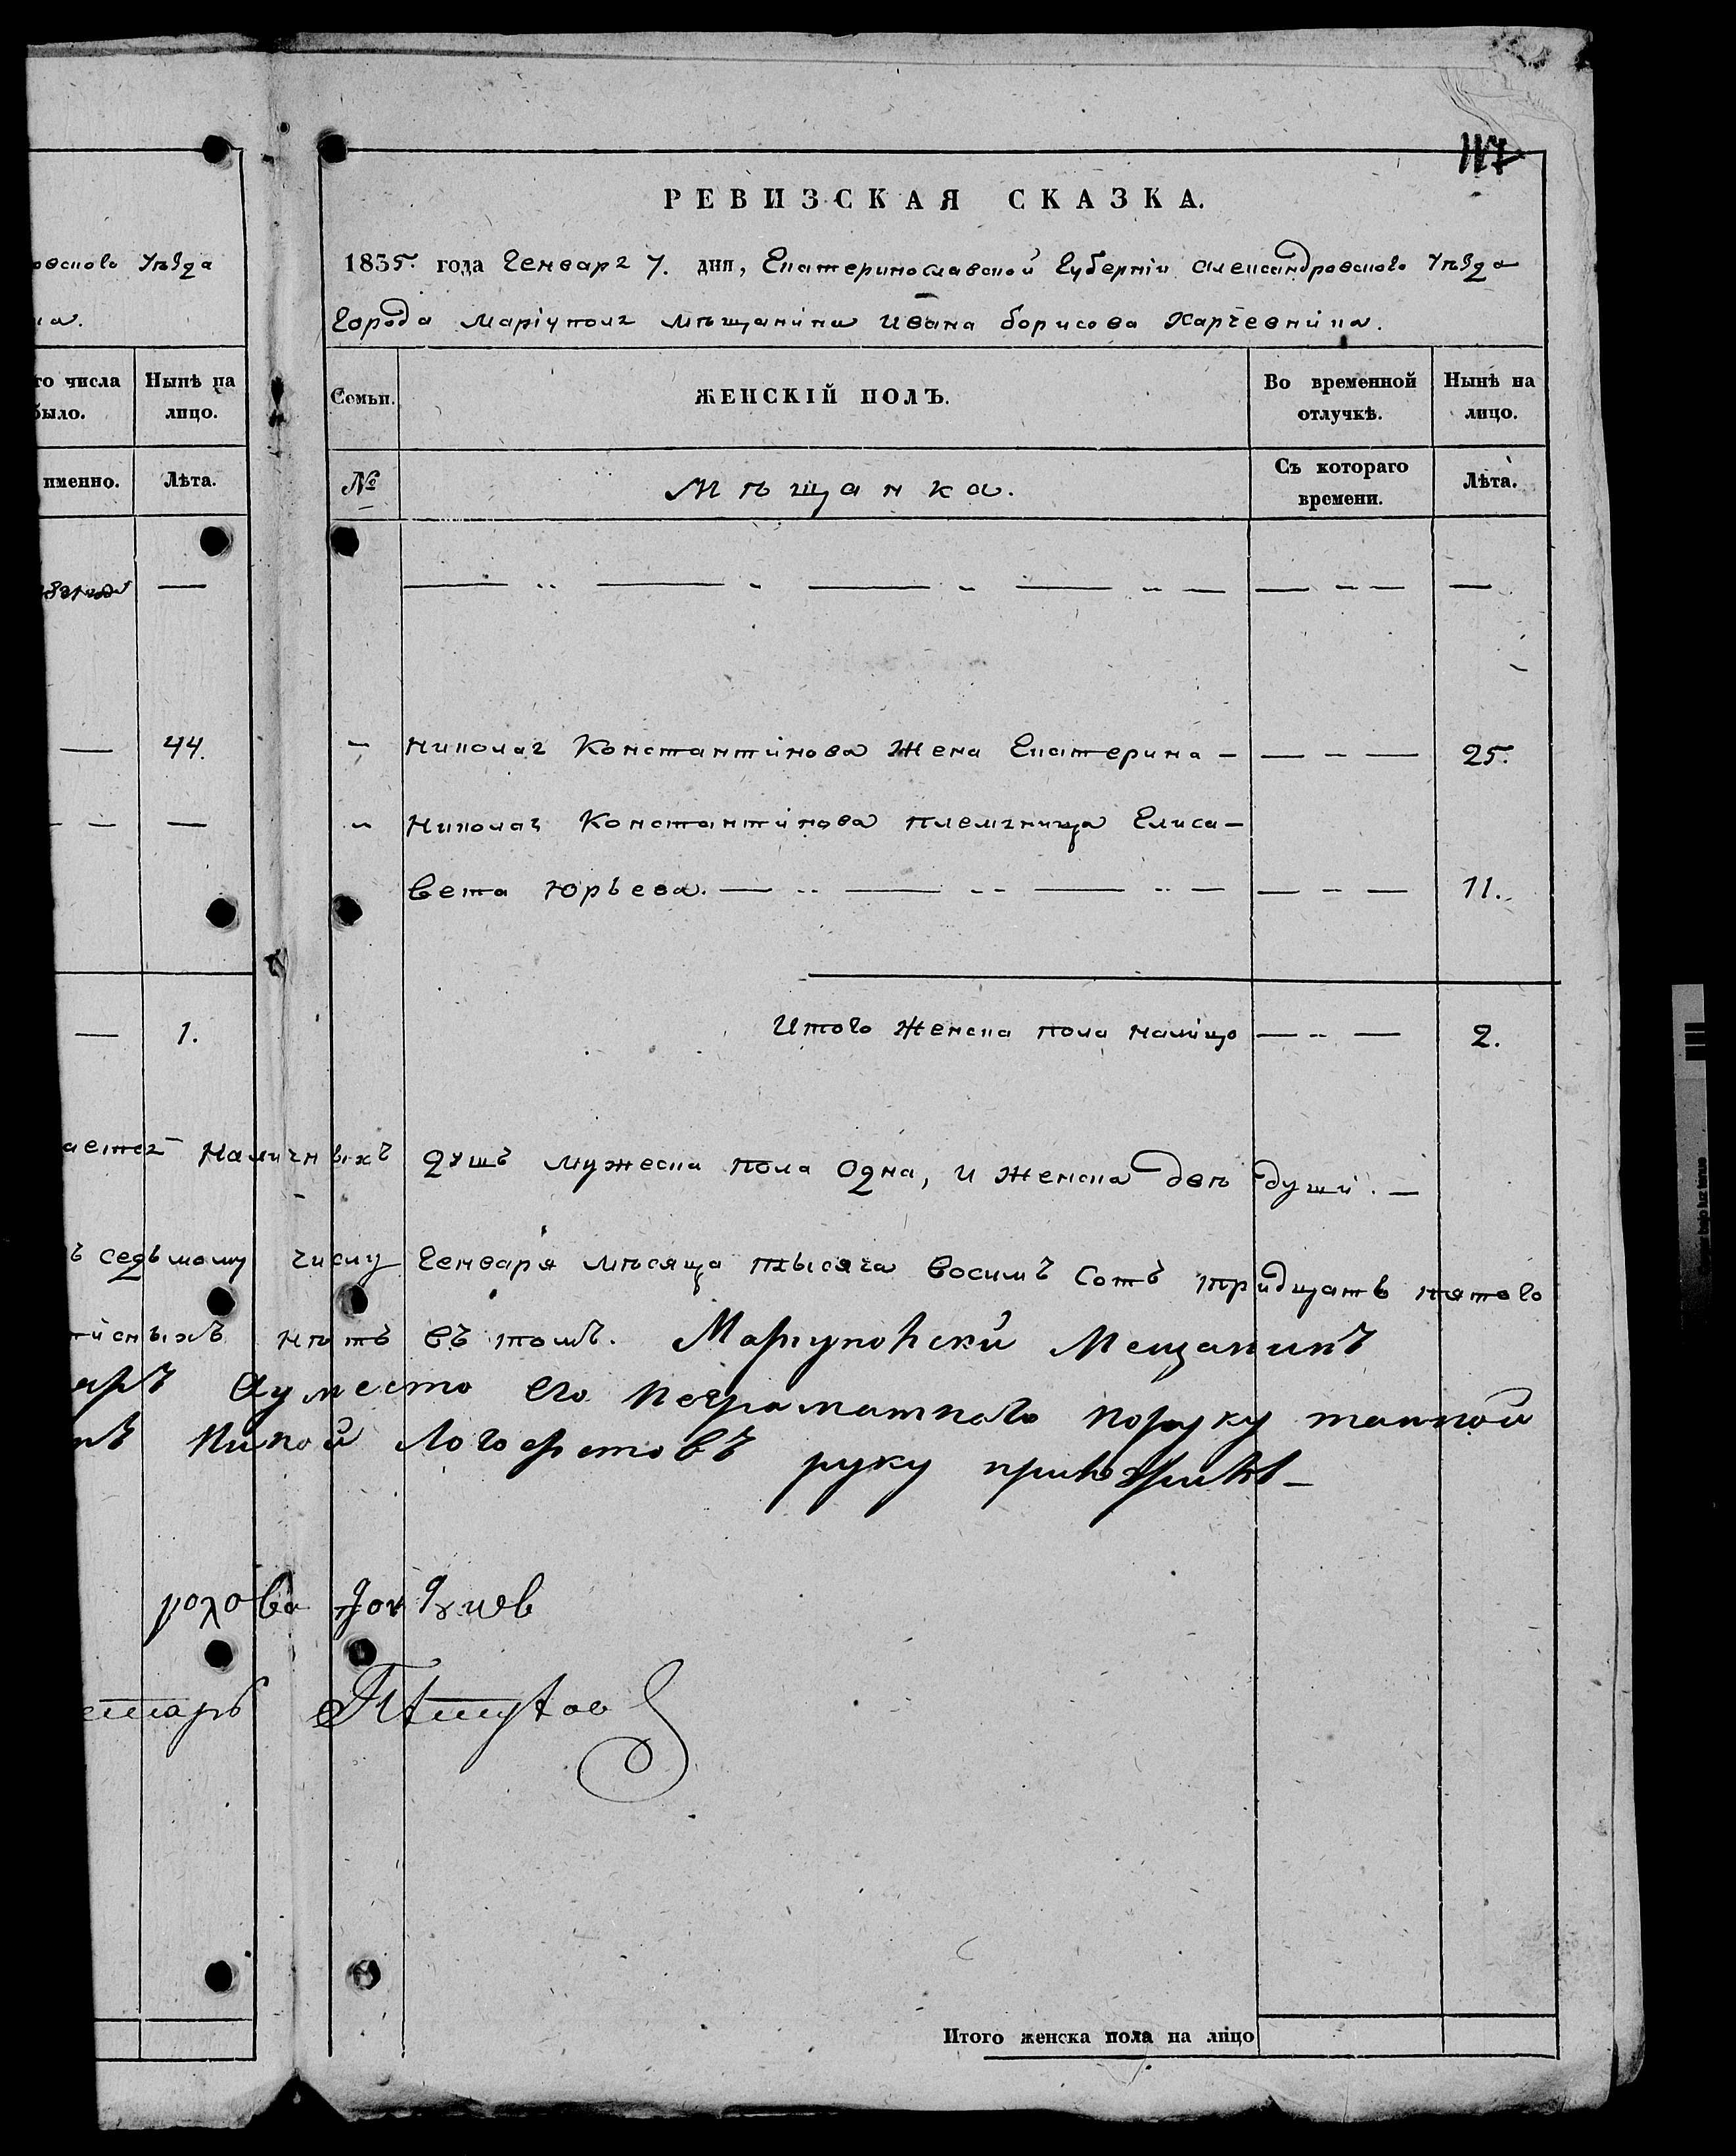 117
РЕВИЗСКАЯ СКАЗКА.
1835. года Генваря 7. дня, Екатеринославской Губерніи Александровскаго Уѣзда
Города Маріуполя Мѣщанина Ивана Борисова Харгевника.
Уѣзда
числа
было.
Нынѣ на
лицо.
именно.
Лѣта.
Семьи.
ЖЕНСКІЙ ПОЛЪ.
Во временной
отлучкѣ.
Нынѣ на
лицо.
№
Мѣщанка.
Съ котораго
времени.
Лѣта.
44.
Николая Константинова Жена Екатерина —
25.
Николая Константинова племяница Елиса-
вета Юрьева.
11.
1.
Итого Женска пола налицо
2.
Наличныхъ душъ мужеска пола одна, и женска двѣ души. —
седьмому числу Генваря мѣсяца тысяча восимъ сотъ тридцать пятого
нѣтъ въ томъ. Мариупольски Мещанинъ
его неграматнаго
Логофетовъ руку приложилъ —
Итого женска пола на лицо